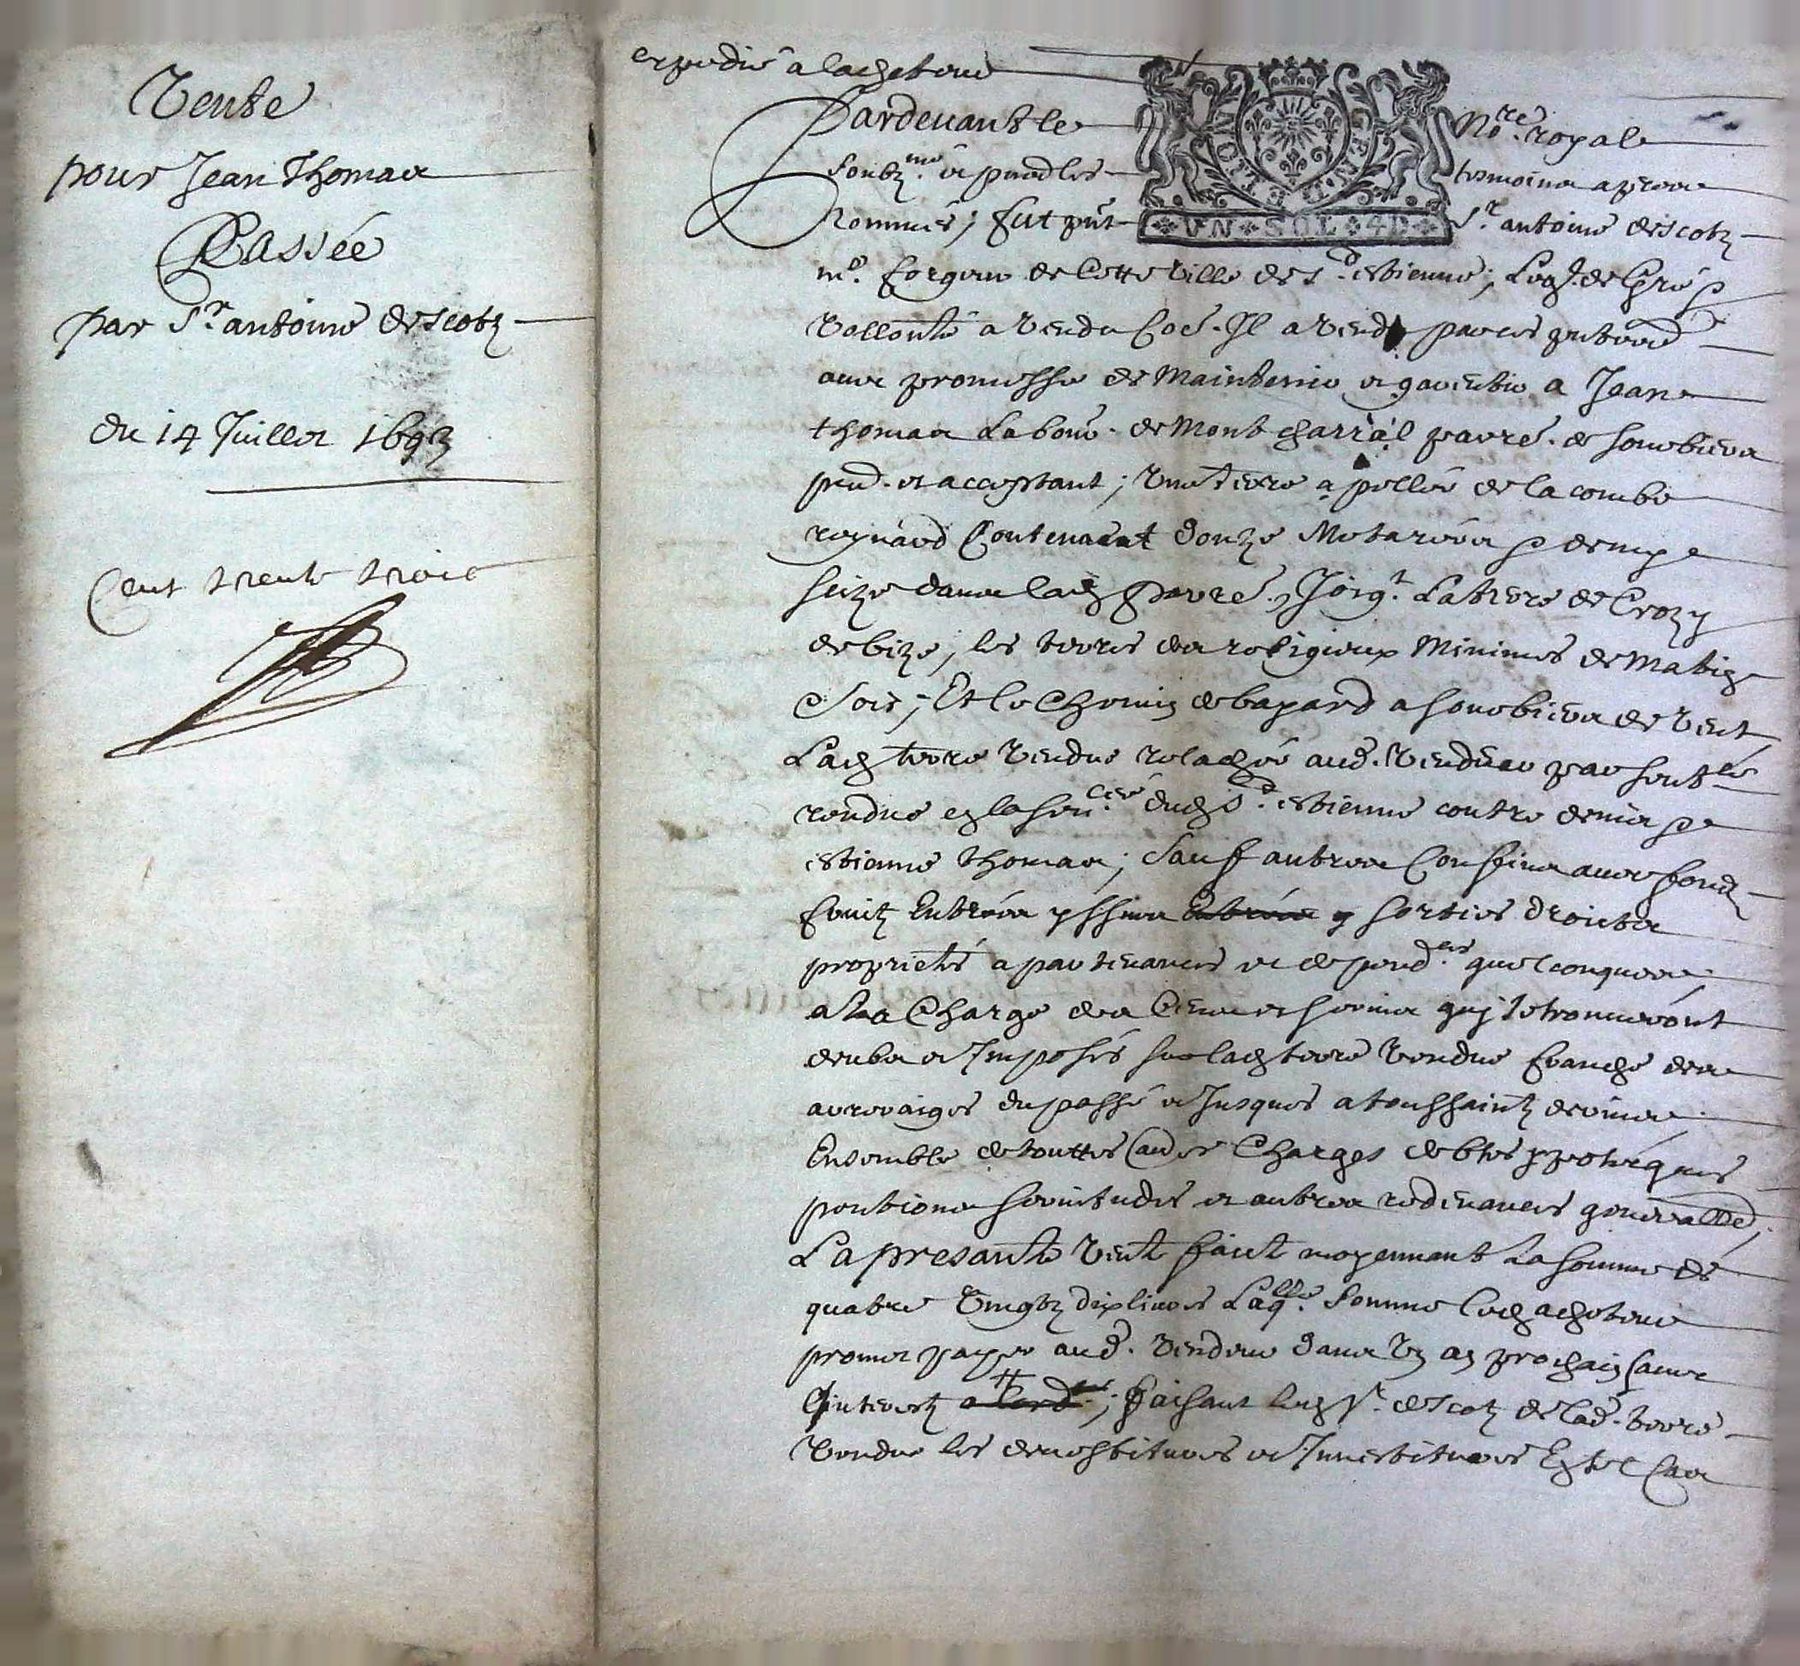 Vente
pour Jean Thomas
Passée
par Sr. antoine descotz
du 14 Juillet 1693
Cent trente trois
expedié a lachepteur
Pardevant le Nore. royal
soubzne. et pnd les temoins apres
nommés; fut pnt Sr. antoine descotz
me. forgeur de cette ville de st. estienne; Leql. de gré
vollonté a vendu Co\e. Il a vendu par ces pntes
avec promesse de maintenir et garentir a Jean
thomas Labour. de mont charral parre. de sorbiers
pnd. et acceptant; Une terre apellée de la combe
reynaud Contenant donze Metarées
seize dans lad parre., Joigt. La terre de Crozy
de bize, les terres des religieux Minimes de matin
soir; Et le Chemin de bayard a sorbiers de vent
Lad terre vendue relachée aud. vendeur par sentce
rendue en la senlcée dud st. estienne contre
estienne thomas; Sauf autres Confins avec fondz
fruitz Entrées yssues sorties droits
proprietés apartenances et dependces quelconques
a la Charge des Cens et servis quj se trouveront
deubs et Imposés sur lad terre vendue franche des
arreraiges du passé et Jusques a toussaintz
Ensemble de touttes autres Charges debtes ypoteques
pentions servitudes et autres redevances generalles
La presante vente faite moyennant La somme de
quatre vingtz dix livres Laqlle. somme led achepteur
promet payer aud. vendeur dans un an prochain sans
Jnterestz; faisant led sr. descotz de lad. terre
vendue les devestitures et Jnvestitures En tel Cas
VN SOL 4D